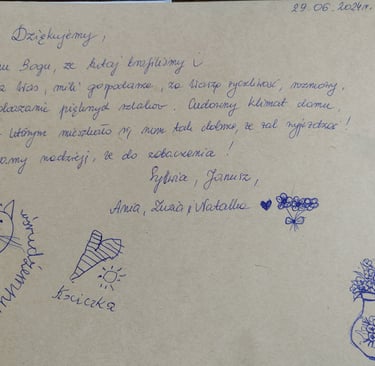 29.06.2024r.
Dziękujemy,
Bogu, że tutaj trafiliśmy
Was, mili gospodarze, za Waszą życzliwość, rozmowy,
pięknych szlaków. Cudowny klimat domu,
którym mieszkało się nam tak dobrze, że żal wyjeżdżać!
amy nadzieję, że do zobaczenia!
Sylwia, Janusz,
Ania, Zuzia i Natalka
Kociczka